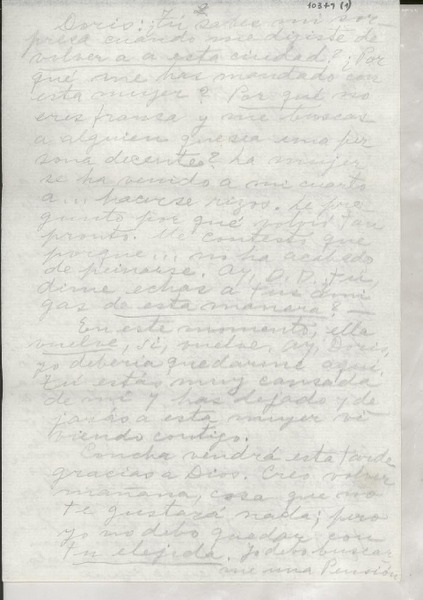 103+9 (1)
2
Doris: ¿Tú sabes mi sor-
presa cuando me dijiste de
volver a a esta ciudad? ¿Por
qué me has mandado con
esta mujer? Por qué no
eres franca y me buscas
a alguien que sea una per
sona decente? La mujer
se ha venido a mi cuarto
a... hacerse rizos. Le pre
gunto por qué volvió tan
pronto. Me contestó que
porque... no ha acabado
de peinarse. Ay, D. D., tú,
dime echas a tus ami
gas de esta manera? —
En este momento, ella
vuelve, sí, vuelve, ay, Doris,
yo debería quedarme aquí.
Tú estás muy cansada
de mí y has dejado y de
jarás a esta mujer vi
viendo contigo.
Concha vendrá esta tarde
gracias a Dios. Creo volver
mañana, cosa que no
te gustará nada; pero
yo no debo quedar con
tu elejida. Yo debo buscar
me una Pensión